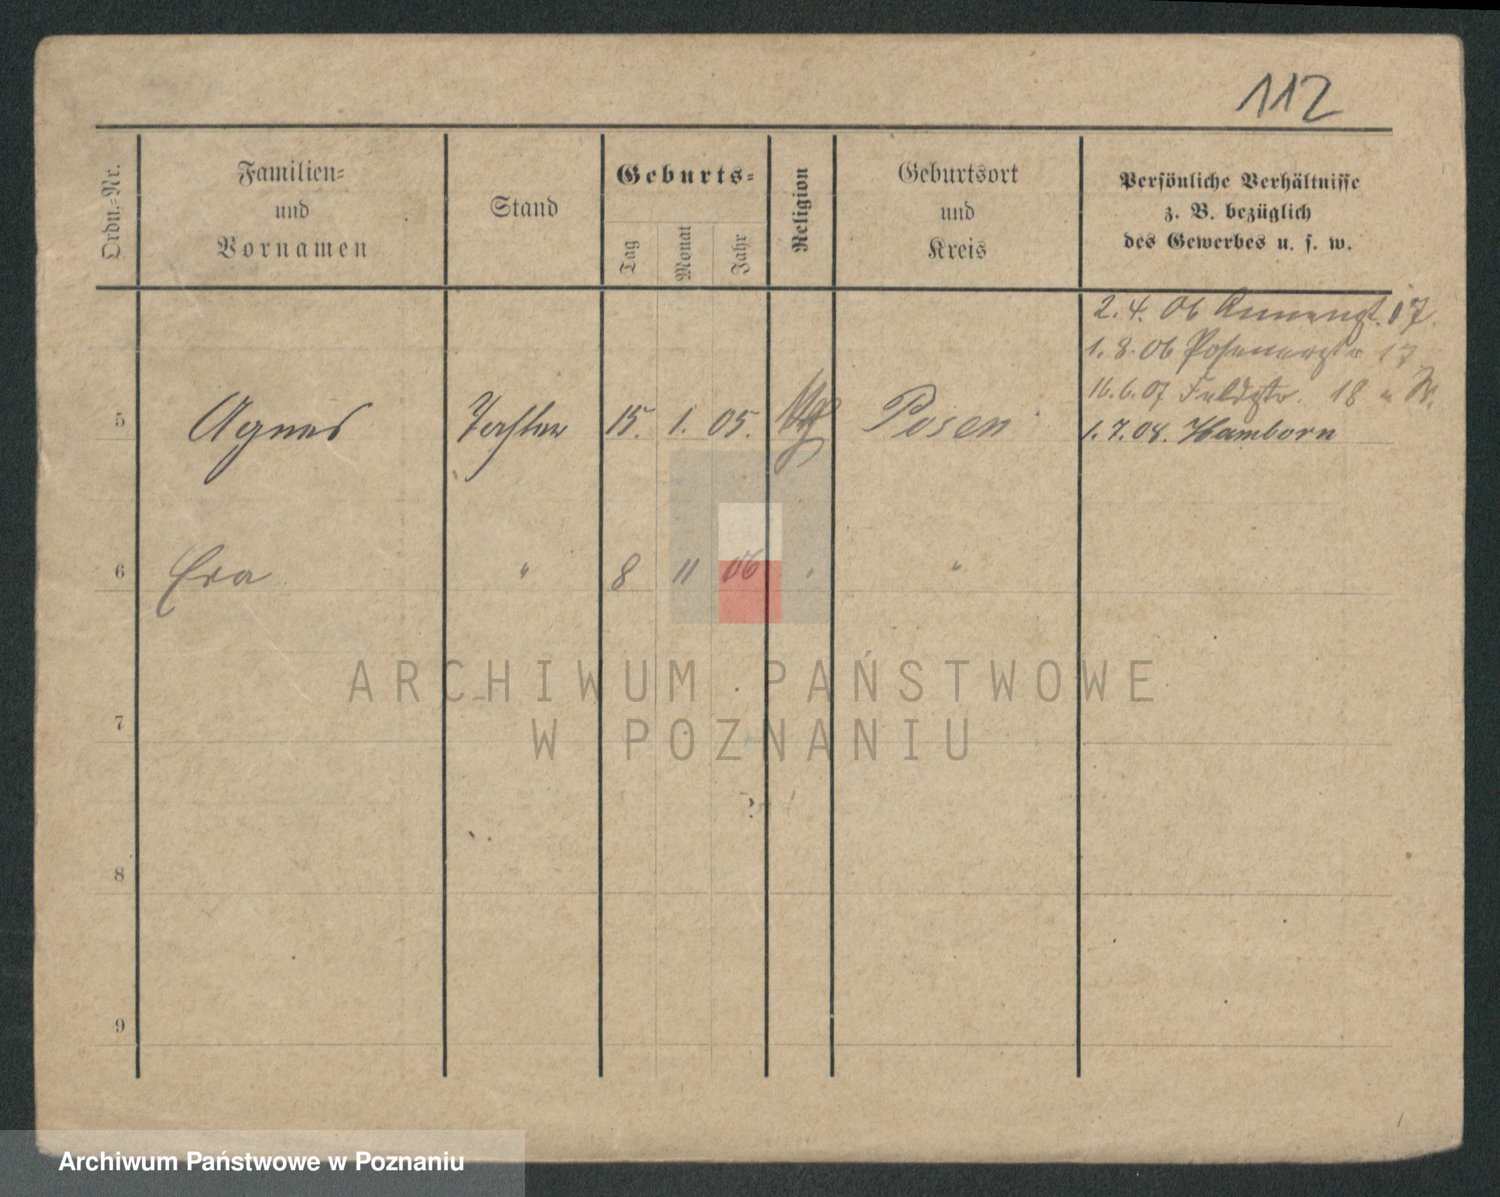 112
Ordn.-Nr.
Familien-
und
Vornamen
Stand
Geburts-
Tag
Monat
Jahr
Religion
Geburtsort
und
Kreis
Persönliche Verhältnisse
z. B. bezüglich
des Gewerbes u. s. w.
2. 4. 06 17.
1. 8. 06 17
16. 6. 07 Feldstr. 18
5 Agnes Tochter 15. 1. 05. Posen 1. 7. 08. Hamborn
6 Eva " 8 11 06 " "
7
8
9
ARCHIWUM PAŃSTWOWE
W POZNANIU
Archiwum Państwowe w Poznaniu